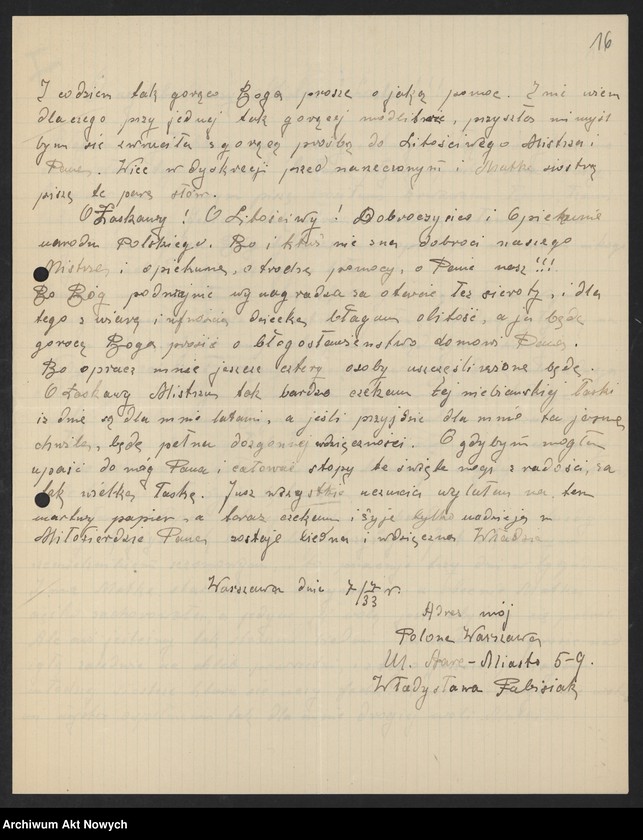 16
I codzien tak gorąco Boga proszę o jakąś pomoc. I nie wiem
dlaczego przy jednej tak gorącej modlitwie, przyszłos mi myśl
bym się zwruciła z gorącą prośbą do Litościwego Mistrza i
Pana. Więc w dyskrecji przed narzeczonym i Matką siostrą
piszę te parę słów.
O Łaskawy! O Litościwy! Dobroczyńco i Opiekunie
narodu Polskiego. Bo i któż nie zna dobroci naszego
Mistrza i opiekuna, o trochę pomocy, o Panie nasz!!!
Bo Bóg podwujnie wynagradza za otarcie łez sieroty, i dla
tego z wiarą i ufnością dziecka błagam o litość, a ja będę
gorącą Boga prosić o błogosławieństwo domowi Pana.
Bo oprucz mnie jeszcze cztery osoby uszczęśliwione będą.
O Łaskawy Mistrzu tak bardzo czekam tej niebiańskiej łaski
iż dnie są dla mnie latami, a jeśli przyjdzie dla mnie ta jasna
chwila, będę pełna dozgonnej wdzięczności. O gdybym mogła
upaść do nóg Pana i całować stopy te święte nogi z radości, za
tak wielką łaskę. Jusz wszystkie uczucia wylałam na ten
martwy papier, a teraz czekam i żyję tylko nadzieją w
Miłosierdzie Pana zostaję biedna i wdzięczna Władzia
Warszawa dnia 7/7 33 r.
Adres mój
Polona Warszawa
Ul. Stare-Miasto 5-9.
Władysława Fabisiak
Archiwum Akt Nowych